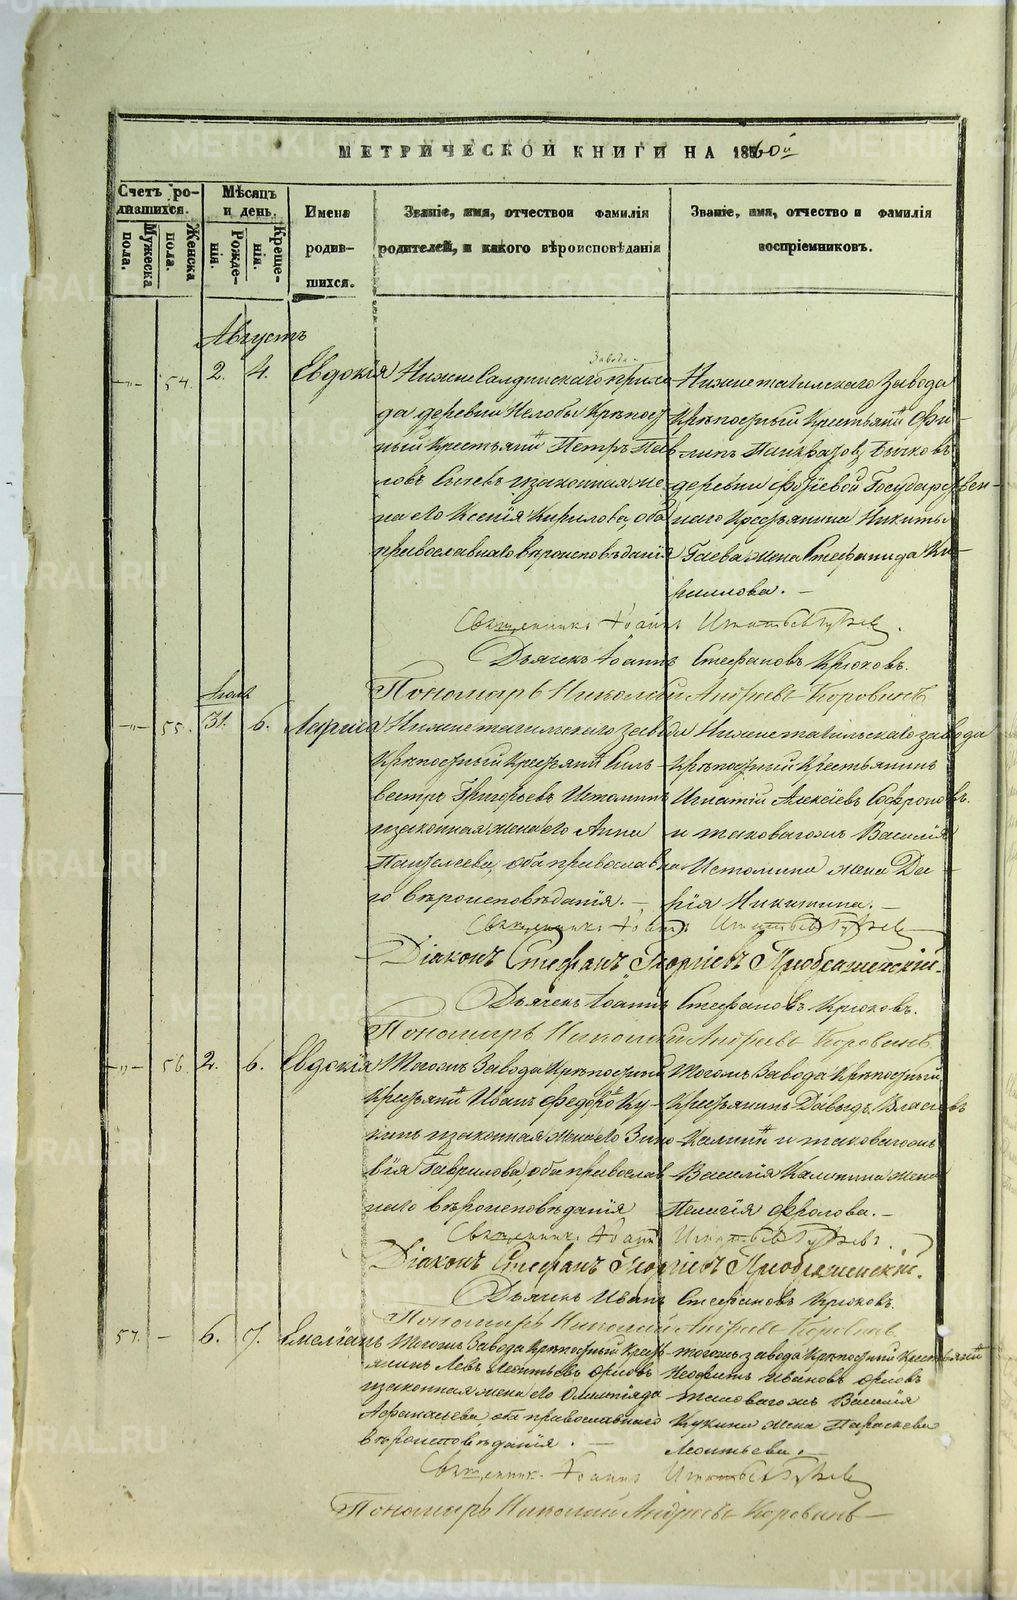 МЕТРИЧЕСКОЙ КНИГИ НА 1860й
Счетъ ро-
дившихся.
Мужеска пола.
Женска пола.
Мѣсяцъ
и день.
Рожде-
нія.
Креще-
нія.
Имена
родив-
шихся.
Званіе, имя, отчество и фамилія
родителей, и какого вѣроисповѣданія
Званіе, имя, отчество и фамилія
воспріемниковъ.
Августъ
54. 2. 4. Евдокія
Завода
Нижнесалдинскаго прихо
да деревни Нелобы Крѣпост
ный Крестьянинъ Петръ Пав
ловъ изаконная же
на его Ксенія Кирилова, оба
православнаго вѣроисповѣданія
Нижнетагилскаго Завода
Крѣпостный Крестьянинъ Фи-
липъ Панкратовъ Бычковъ
деревни Государствен-
наго Крестьянина Никиты
Гаева жена Стефанида Ки-
рилова.
Священникъ Іоаннъ Игнатьевъ
Дьячекъ Іоаннъ Стефановъ Крюковъ.
Пономарь Николай Андреевъ Коровинъ
Іюля
55. 31. 6. Лариса
Нижнетагильскаго завода
Крѣпостный Крестьянинъ Силь-
вестръ Григорьевъ Истоминъ
изаконная жена его Анна
Пантелеева, оба православна
го вѣроисповѣданія.
Нижнетагильскаго завода
Крѣпостный Крестьянинъ
Игнатій Алексѣевъ Софроновъ.
и таковагожъ Василія
Истомина жена Да-
рія Никитина.
Священникъ Іоаннъ Игнатьевъ
Діаконъ Стефанъ Георгіевъ Преображенскій.
Дьячекъ Іоаннъ Стефановъ Крюковъ.
Пономарь Николай Андреевъ Коровинъ.
56. 2. 6. Евдокія
Тогожъ Завода Крѣпостный
Крестьянинъ Иванъ Федоровъ Ку-
кинъ изаконная жена его Зино
вія Гаврилова, оба православ
наго вѣроисповѣданія
Тогожъ Завода Крѣпостный
Крестьянинъ Давыдъ Власьевъ
Калининъ и таковагожъ
Василія Калинина жена
Пелагія Фролова.
Священникъ Іоаннъ Игнатьевъ
Діаконъ Стефанъ Георгіевъ Преображенскій.
Дьячекъ Иванъ Стефановъ Крюковъ.
Пономарь Николай Андреевъ Коровинъ.
57. 6. 7. Емеліанъ
Тогожъ Завода Крѣпостный Крест
янинъ Левъ Леонтьевъ Орловъ
изаконная жена его Олимпіяда
Афанасьева оба православнаго
вѣроисповѣданія.
тогожъ завода Крѣпостный Крестьянинъ
Неофитъ Ивановъ Орловъ
таковагожъ Василія
Кукина жена Параскева
Леонтьева.
Священникъ Іоаннъ Игнатьевъ
Пономарь Николай Андреевъ Коровинъ
METRIKI.GASO-URAL.RU